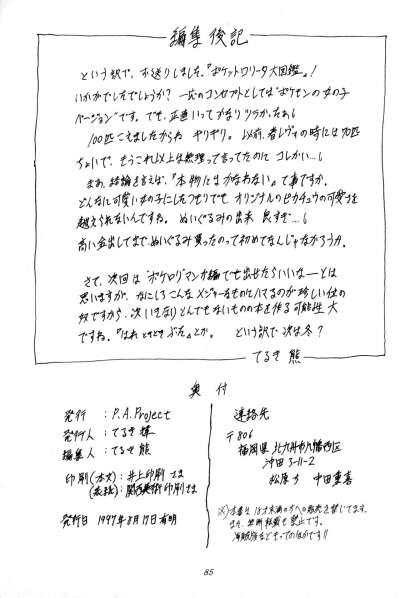 編集後記
という訳で、お送りしました、『ポケットロリータ大図鑑』!
いかがでしたでしょうか? 一応のコンセプトとしては"ポケモンの女の子
バージョン"です。でも、正直いってかなりツラかったぁ
100匹こえましたからね ギリギリ。以前、
ちょいで、もうこれ以上は無理って言ってたのに コレかい…。
まぁ、結論を言えば、『本物にはかなわない』って事ですか。
どんなに可愛い女の子にしたつもりでも、オリジナルのピカチュウの可愛さを
超えられないんですね。ぬいぐるみの出来 良すぎ…。
高い金出してまでぬいぐるみ買ったのって初めてなんじゃなかろうか。
さて、次回は"ポケロリ"マンガ編でも出せたらいいなーとは
思いますが、なにしろこんなメジャーなものにハマるのが珍しい位の
奴ですから、次いきなりとんでもないものの本を作る可能性 大
ですね。『はれときどきぶた』とか。 という訳で次は冬?
てるき 熊
奥付
発行 : P.A.Project
発行人 : てるき 熊
編集人 : てるき 熊
印刷(本文) : 井上印刷さま
(表紙) : 関西美術印刷さま
発行日 1997年8月17日有明
連絡先
〒806
福岡県北九州市八幡西区
沖田 3-11-2
松原方 中田
※)本書は18才未満の方への販売を禁じてます。
また、無断転載も禁止です。
海賊版などもってのほかです!!
85